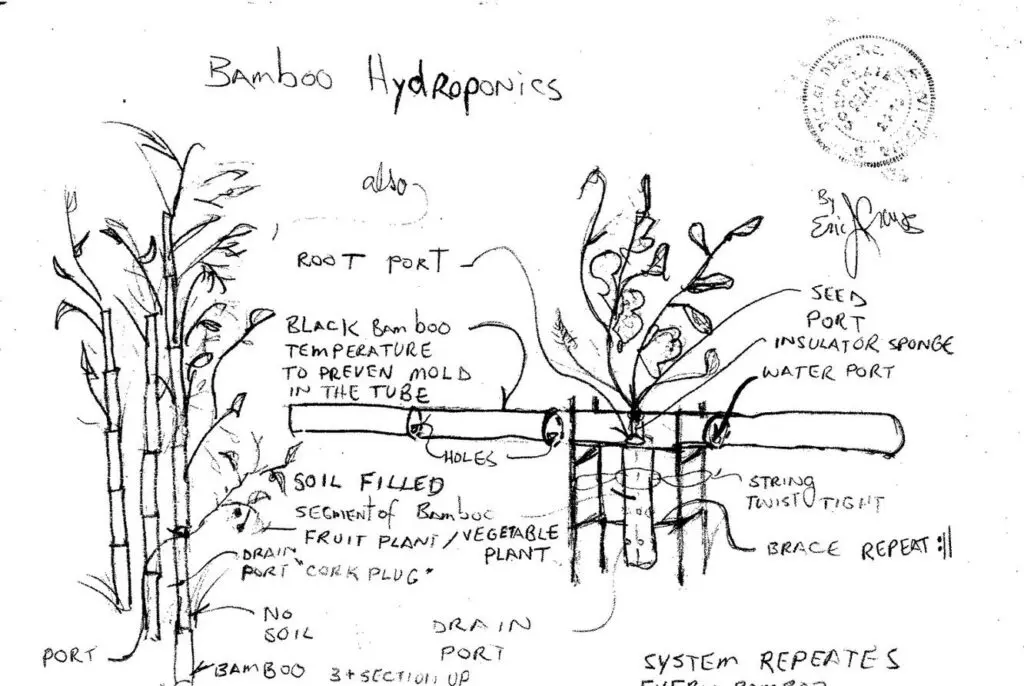 Bamboo Hydroponics
also
By
Eric J
ROOT PORT
SEED
PORT
BLACK BAMBOO
TEMPERATURE
TO PREVEN MOLD
IN THE TUBE
INSULATOR SPONGE
WATER PORT
HOLES
SOIL FILLED
SEGMENT of Bamboo
FRUIT PLANT / VEGETABLE
PLANT
STRING
TWIST TIGHT
BRACE REPEAT :||
DRAIN
PORT "CORK PLUG"
NO
SOIL
DRAIN
PORT
PORT
BAMBOO 3+SECTION UP
SYSTEM REPEATES
EVERY BAMBOO